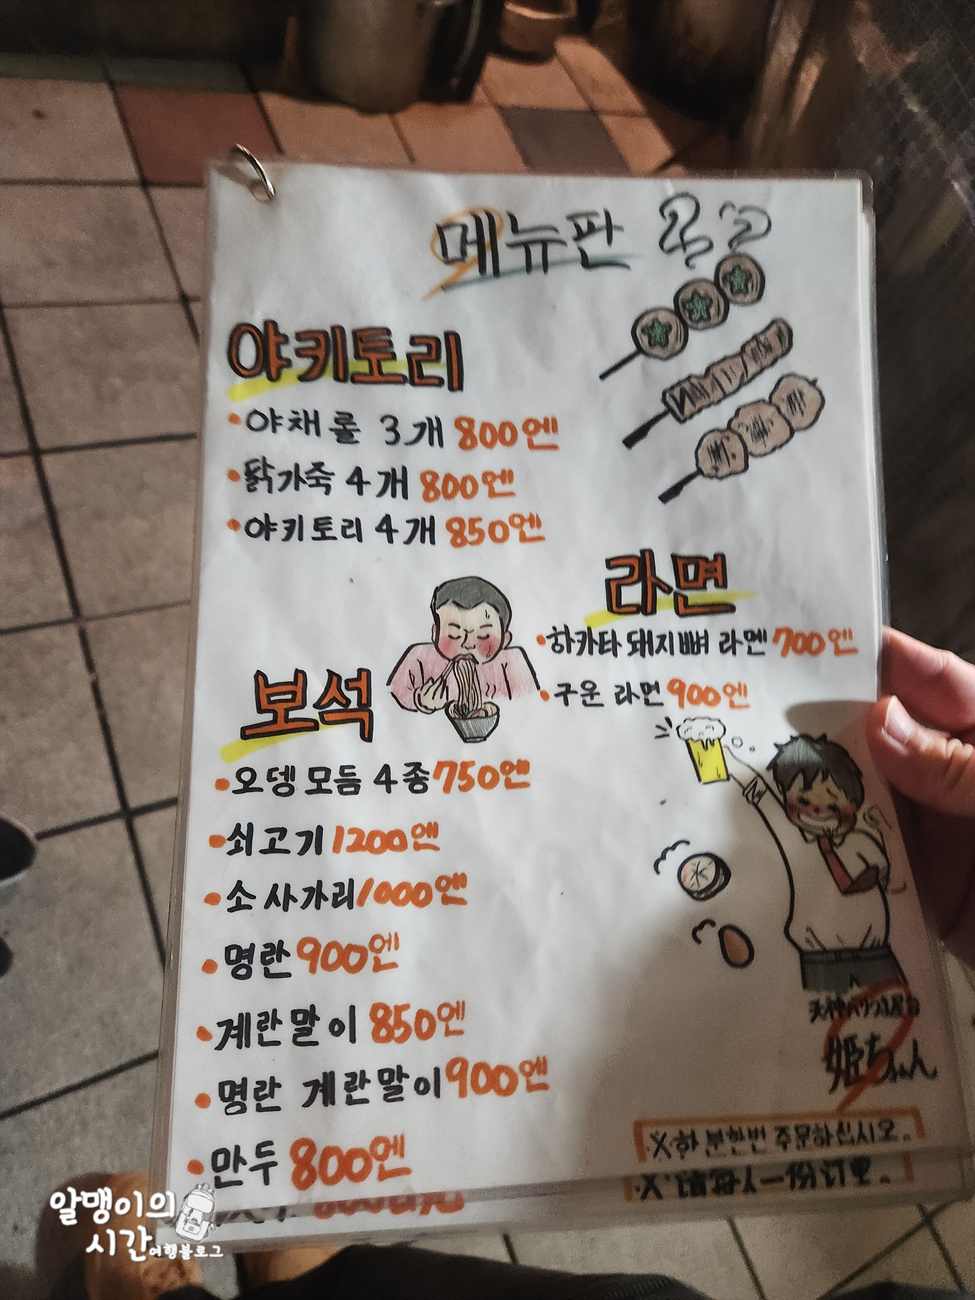 메뉴판
야키토리
• 야채 롤 3개 800엔
• 닭가죽 4개 800엔
• 야키토리 4개 850엔
라면
• 하카타 돼지뼈 라멘 700엔
• 구운 라면 900엔
보석
• 오뎅 모듬 4종 750엔
• 쇠고기 1200엔
• 소 사가리 1000엔
• 명란 900엔
• 계란말이 850엔
• 명란 계란말이 900엔
• 만두 800엔
姫ちゃん
※한 분한번 주문하십시오.
알맹이의
시간 여행블로그